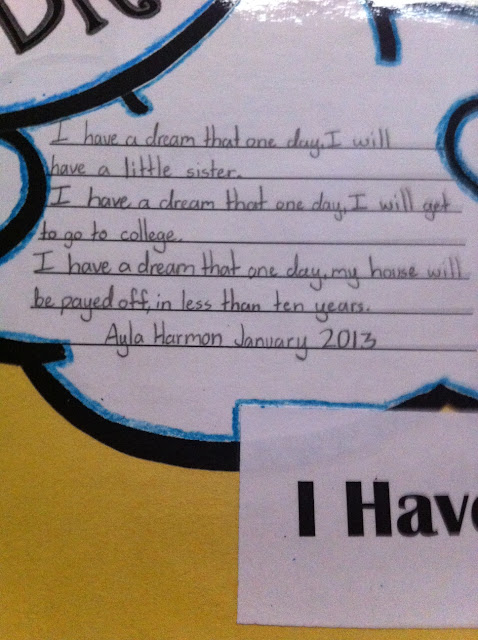 I have a dream that one day, I will
have a little sister.
I have a dream that one day, I will get
to go to college.
I have a dream that, one day, my house will
be payed off, in less than ten years.
Ayla Harmon January 2013
I Have